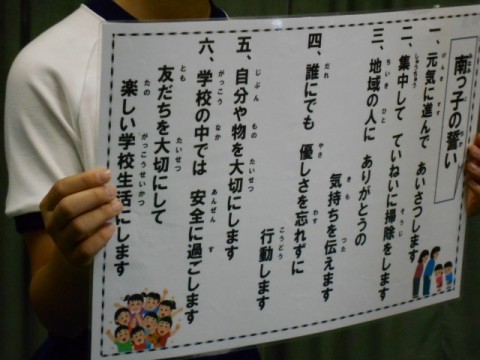 南っ子の誓い
一、元気に進んで あいさつします
二、集中して ていねいに掃除をします
三、地域の人に ありがとうの
気持ちを伝えます
四、誰にでも 優しさを忘れずに
行動します
五、自分や物を大切にします
六、学校の中では 安全に過ごします
友だちを大切にして
楽しい学校生活にします